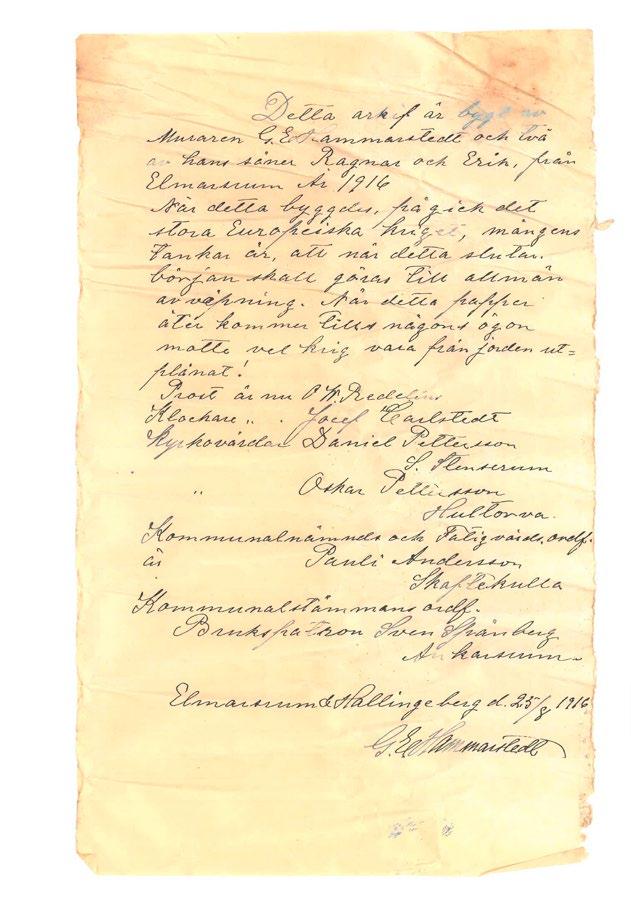 Detta arkif är bygt av
Muraren G.E. Hammarstedt och två
av hans söner Ragnar och Erik, från
Elmarsrum År 1916
När detta byggdes, pågick det
stora Europeiska kriget, mångens
tankar är, att när detta slutar.
början skall göras till allmän
avväpning. När detta papper
åter kommer tills någons ögon
måtte vel krig vara från jorden ut=
plånat!
Prost är nu O W. Redelius
Klockare „ . Josef Carlstedt
Kyrkovärdar Daniel Pettersson
S. Stenserum
„ Oskar Pettersson
Hultorva.
Kommunalnämnds och Fatigvårds. ordf.
är Pauli Andersson
Skaftekulla
Kommunalstämmans ordf.
Brukspatron Sven Spånberg
Ankarsrum
Elmarsrum & Hallingeberg d. 25/8 1916
G.E. Hammarstedt